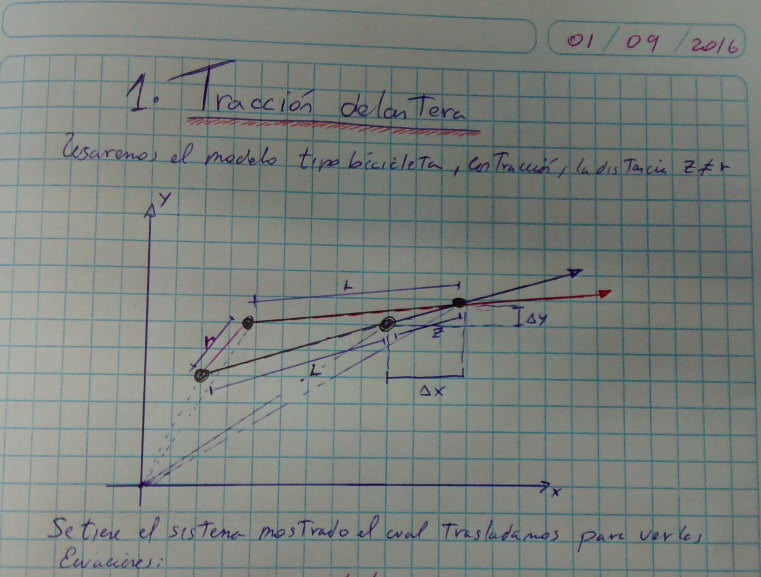 01 / 09 / 2016
1. Tracción delantera
Usaremos el modelo tipo bicicleta, con tracción, la distancia z≠r
Y
L
r
ΔY
z
L
ΔX
x
Se tiene el sistema mostrado el cual Trasladamos para ver las
Ecuaciones: